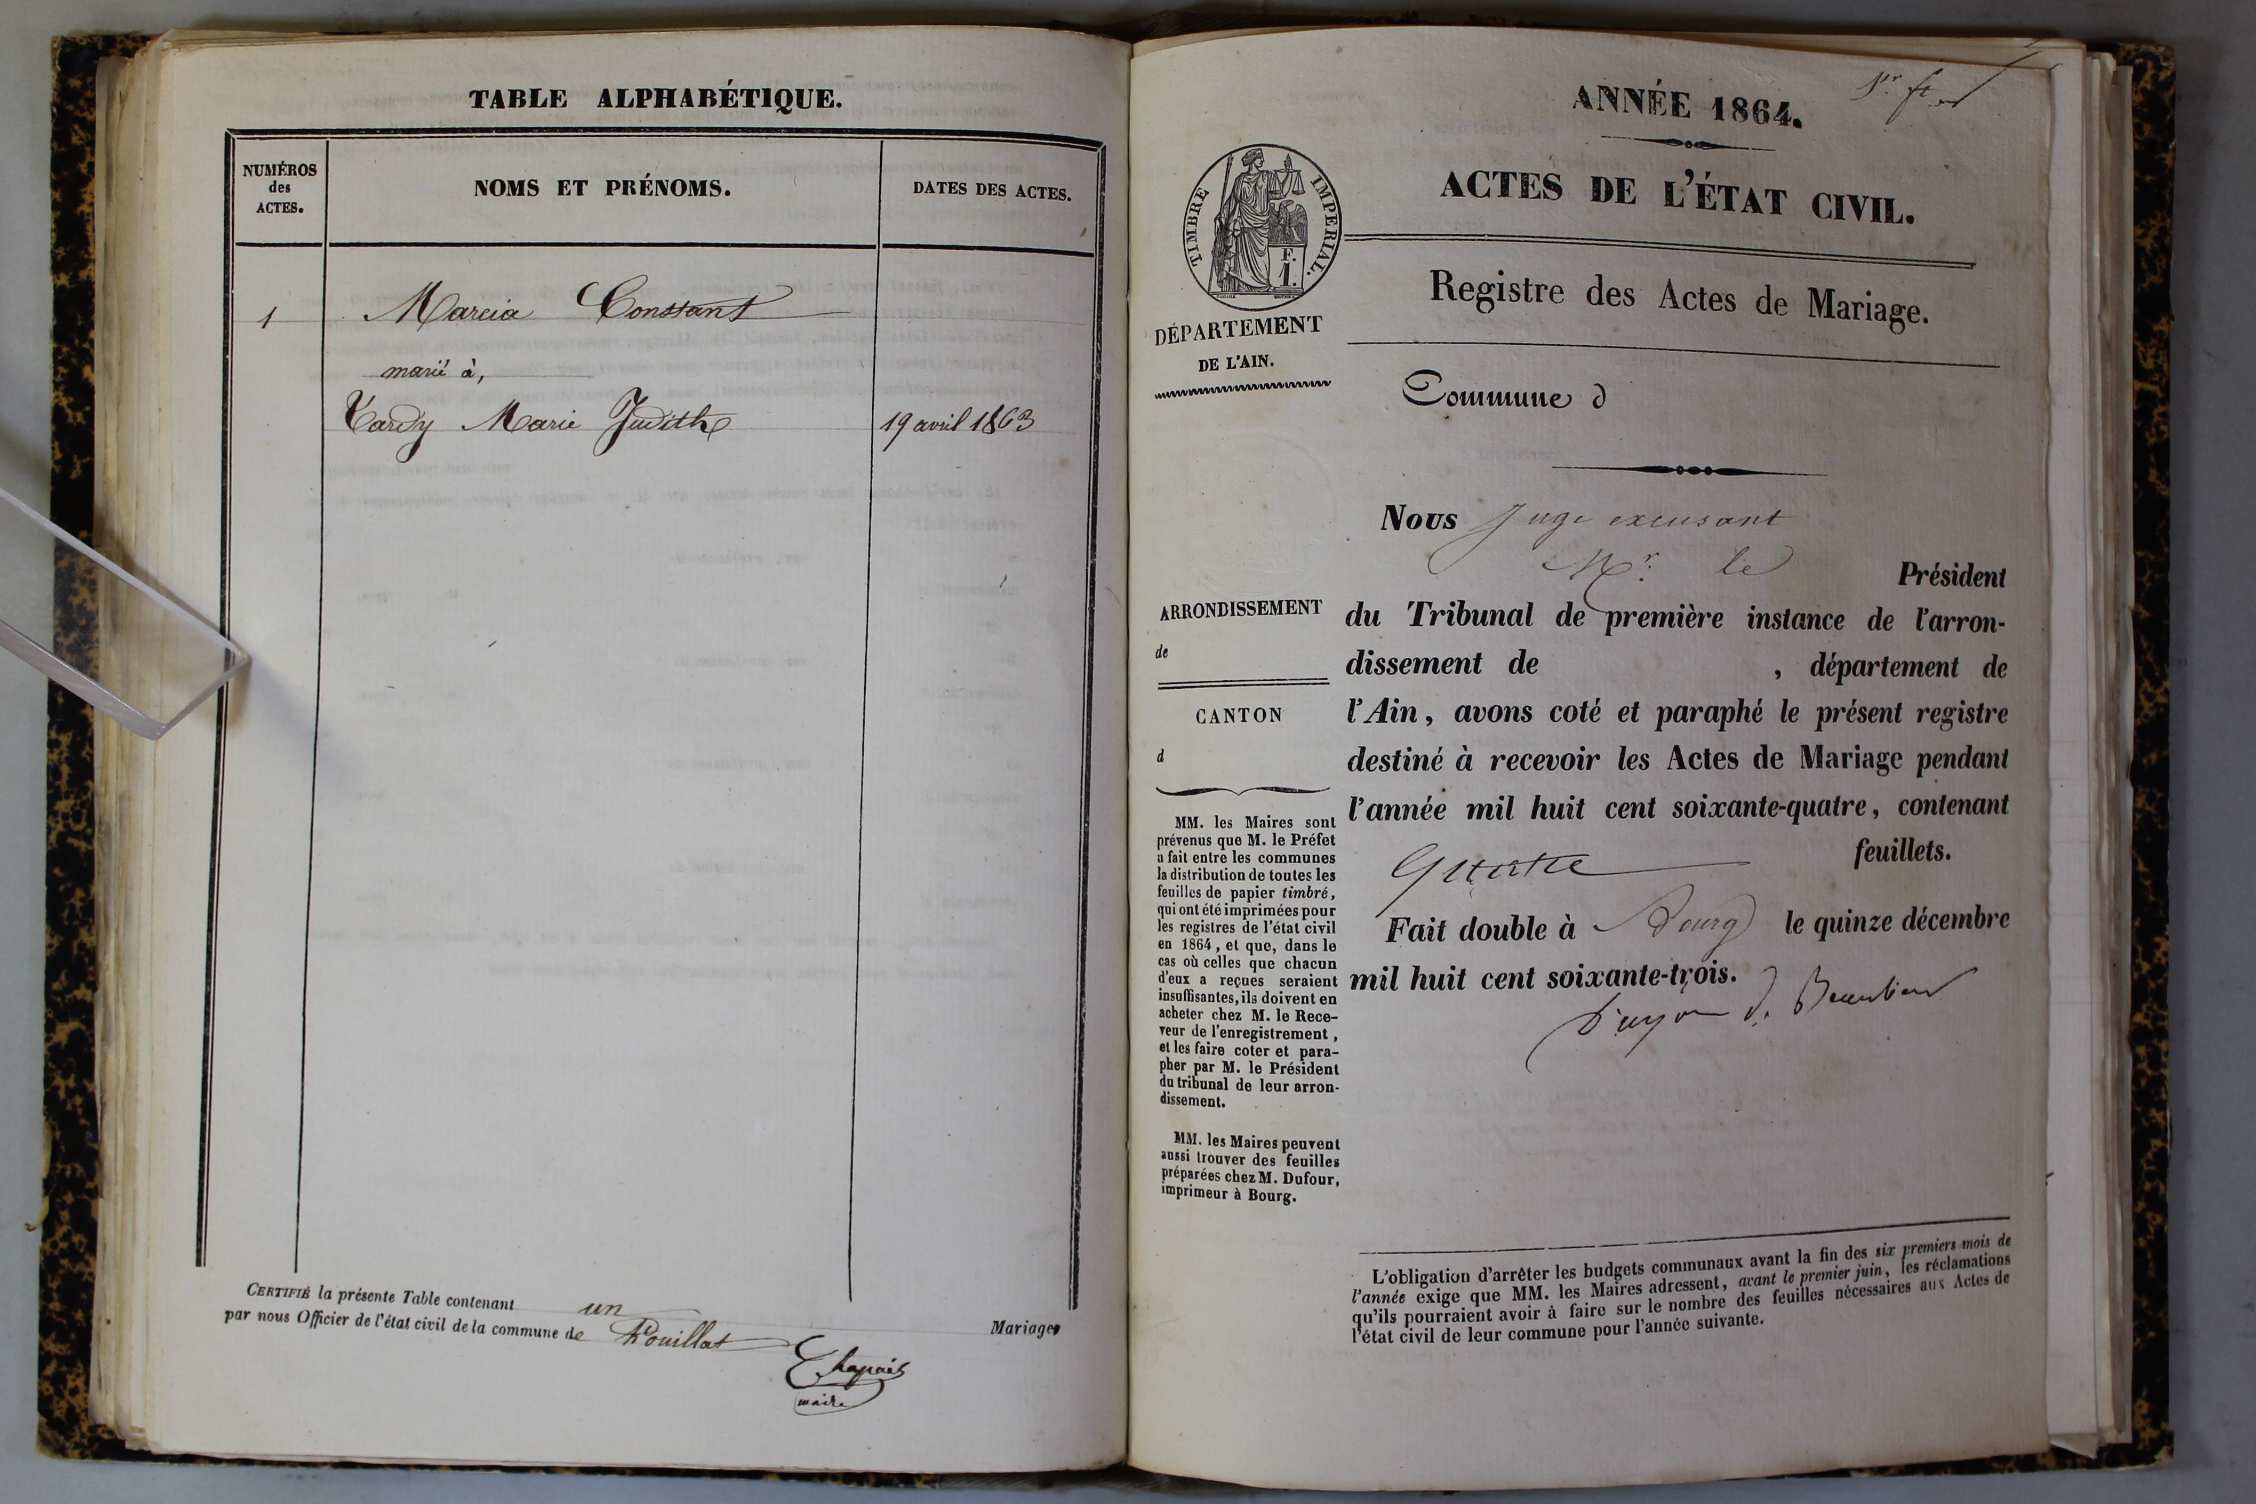 TABLE ALPHABÉTIQUE.
NUMÉROS
des
ACTES.
NOMS ET PRÉNOMS.
DATES DES ACTES.
1
Marcia Constant
marié à,
Tardy Marie Judith
19 avril 1863
CERTIFIÉ la présente Table contenant un Mariage
par nous Officier de l'état civil de la commune de Pouillat
maire
ANNÉE 1864.
ACTES DE L'ÉTAT CIVIL.
TIMBRE IMPERIAL.
F.
1.
Registre des Actes de Mariage.
DÉPARTEMENT
DE L'AIN.
Commune d
Nous Juge excusant
Mr. le Président
ARRONDISSEMENT
de
CANTON
d
du Tribunal de première instance de l'arron-
dissement de , département de
l'Ain, avons coté et paraphé le présent registre
destiné à recevoir les Actes de Mariage pendant
l'année mil huit cent soixante-quatre, contenant
Quatre feuillets.
Fait double à Bourg le quinze décembre
mil huit cent soixante-trois.
MM. les Maires sont
prévenus que M. le Préfet
a fait entre les communes
la distribution de toutes les
feuilles de papier timbré,
qui ont été imprimées pour
les registres de l'état civil
en 1864, et que, dans le
cas où celles que chacun
d'eux a reçues seraient
insuffisantes, ils doivent en
acheter chez M. le Rece-
veur de l'enregistrement,
et les faire coter et para-
pher par M. le Président
du tribunal de leur arron-
dissement.
MM. les Maires peuvent
aussi trouver des feuilles
préparées chez M. Dufour,
imprimeur à Bourg.
L'obligation d'arrêter les budgets communaux avant la fin des six premiers mois de
l'année exige que MM. les Maires adressent, avant le premier juin, les réclamations
qu'ils pourraient avoir à faire sur le nombre des feuilles nécessaires aux Actes de
l'état civil de leur commune pour l'année suivante.